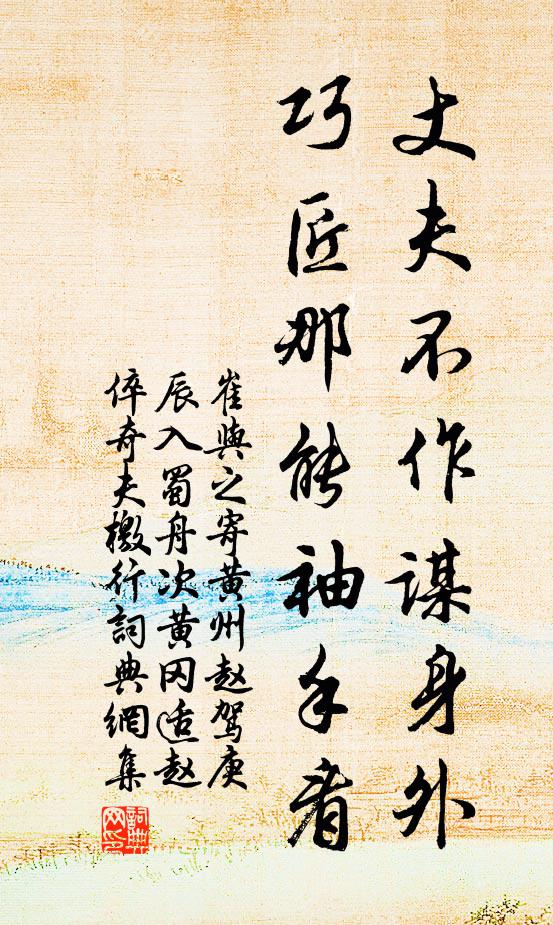 丈夫不作谋身外
巧匠那能袖手看
崔与之寄黄州赵驾庚
辰入蜀舟次黄冈适赵
倅奇夫檄行词典网集
詞典网印